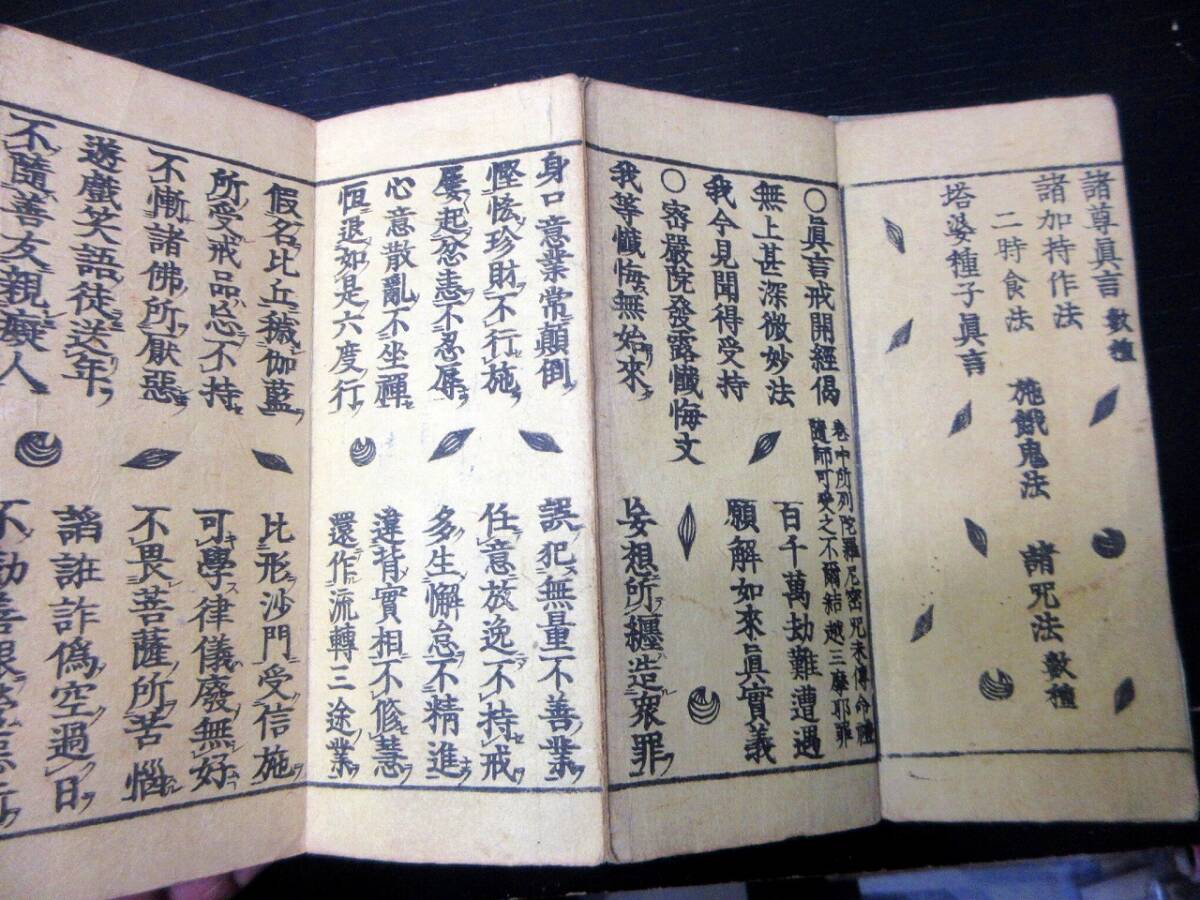 諸尊眞言 數種
諸加持作法
二時食法　施餓鬼法　諸咒法 數種
塔婆種子眞言
○眞言戒開經偈
卷中所列陀羅尼密咒未傳命禮
隨師可受之不爾結越三摩耶罪
無上甚深微妙法　百千萬劫難遭遇
我今見聞得受持　願解如來眞實義
○密嚴院發露懺悔文
我等懺悔無始來　妄想所纏造衆罪
身口意業常顛倒　誤犯無量不善業
慳悋珍財不行施　任意放逸不持戒
屡起忿恚不忍辱　多生懈怠不精進
心意散亂不坐禪　違背實相不修慧
恆退如是六度行　還作流轉三途業
假名比丘穢伽藍　比形沙門受信施
所受戒品忘不持　可學律儀廢無好
不慚諸佛所厭惡　不畏菩薩所苦惱
遊戲笑語徒送年　諂誑詐僞空過日
不隨善友親癡人　不勤善根營惡行